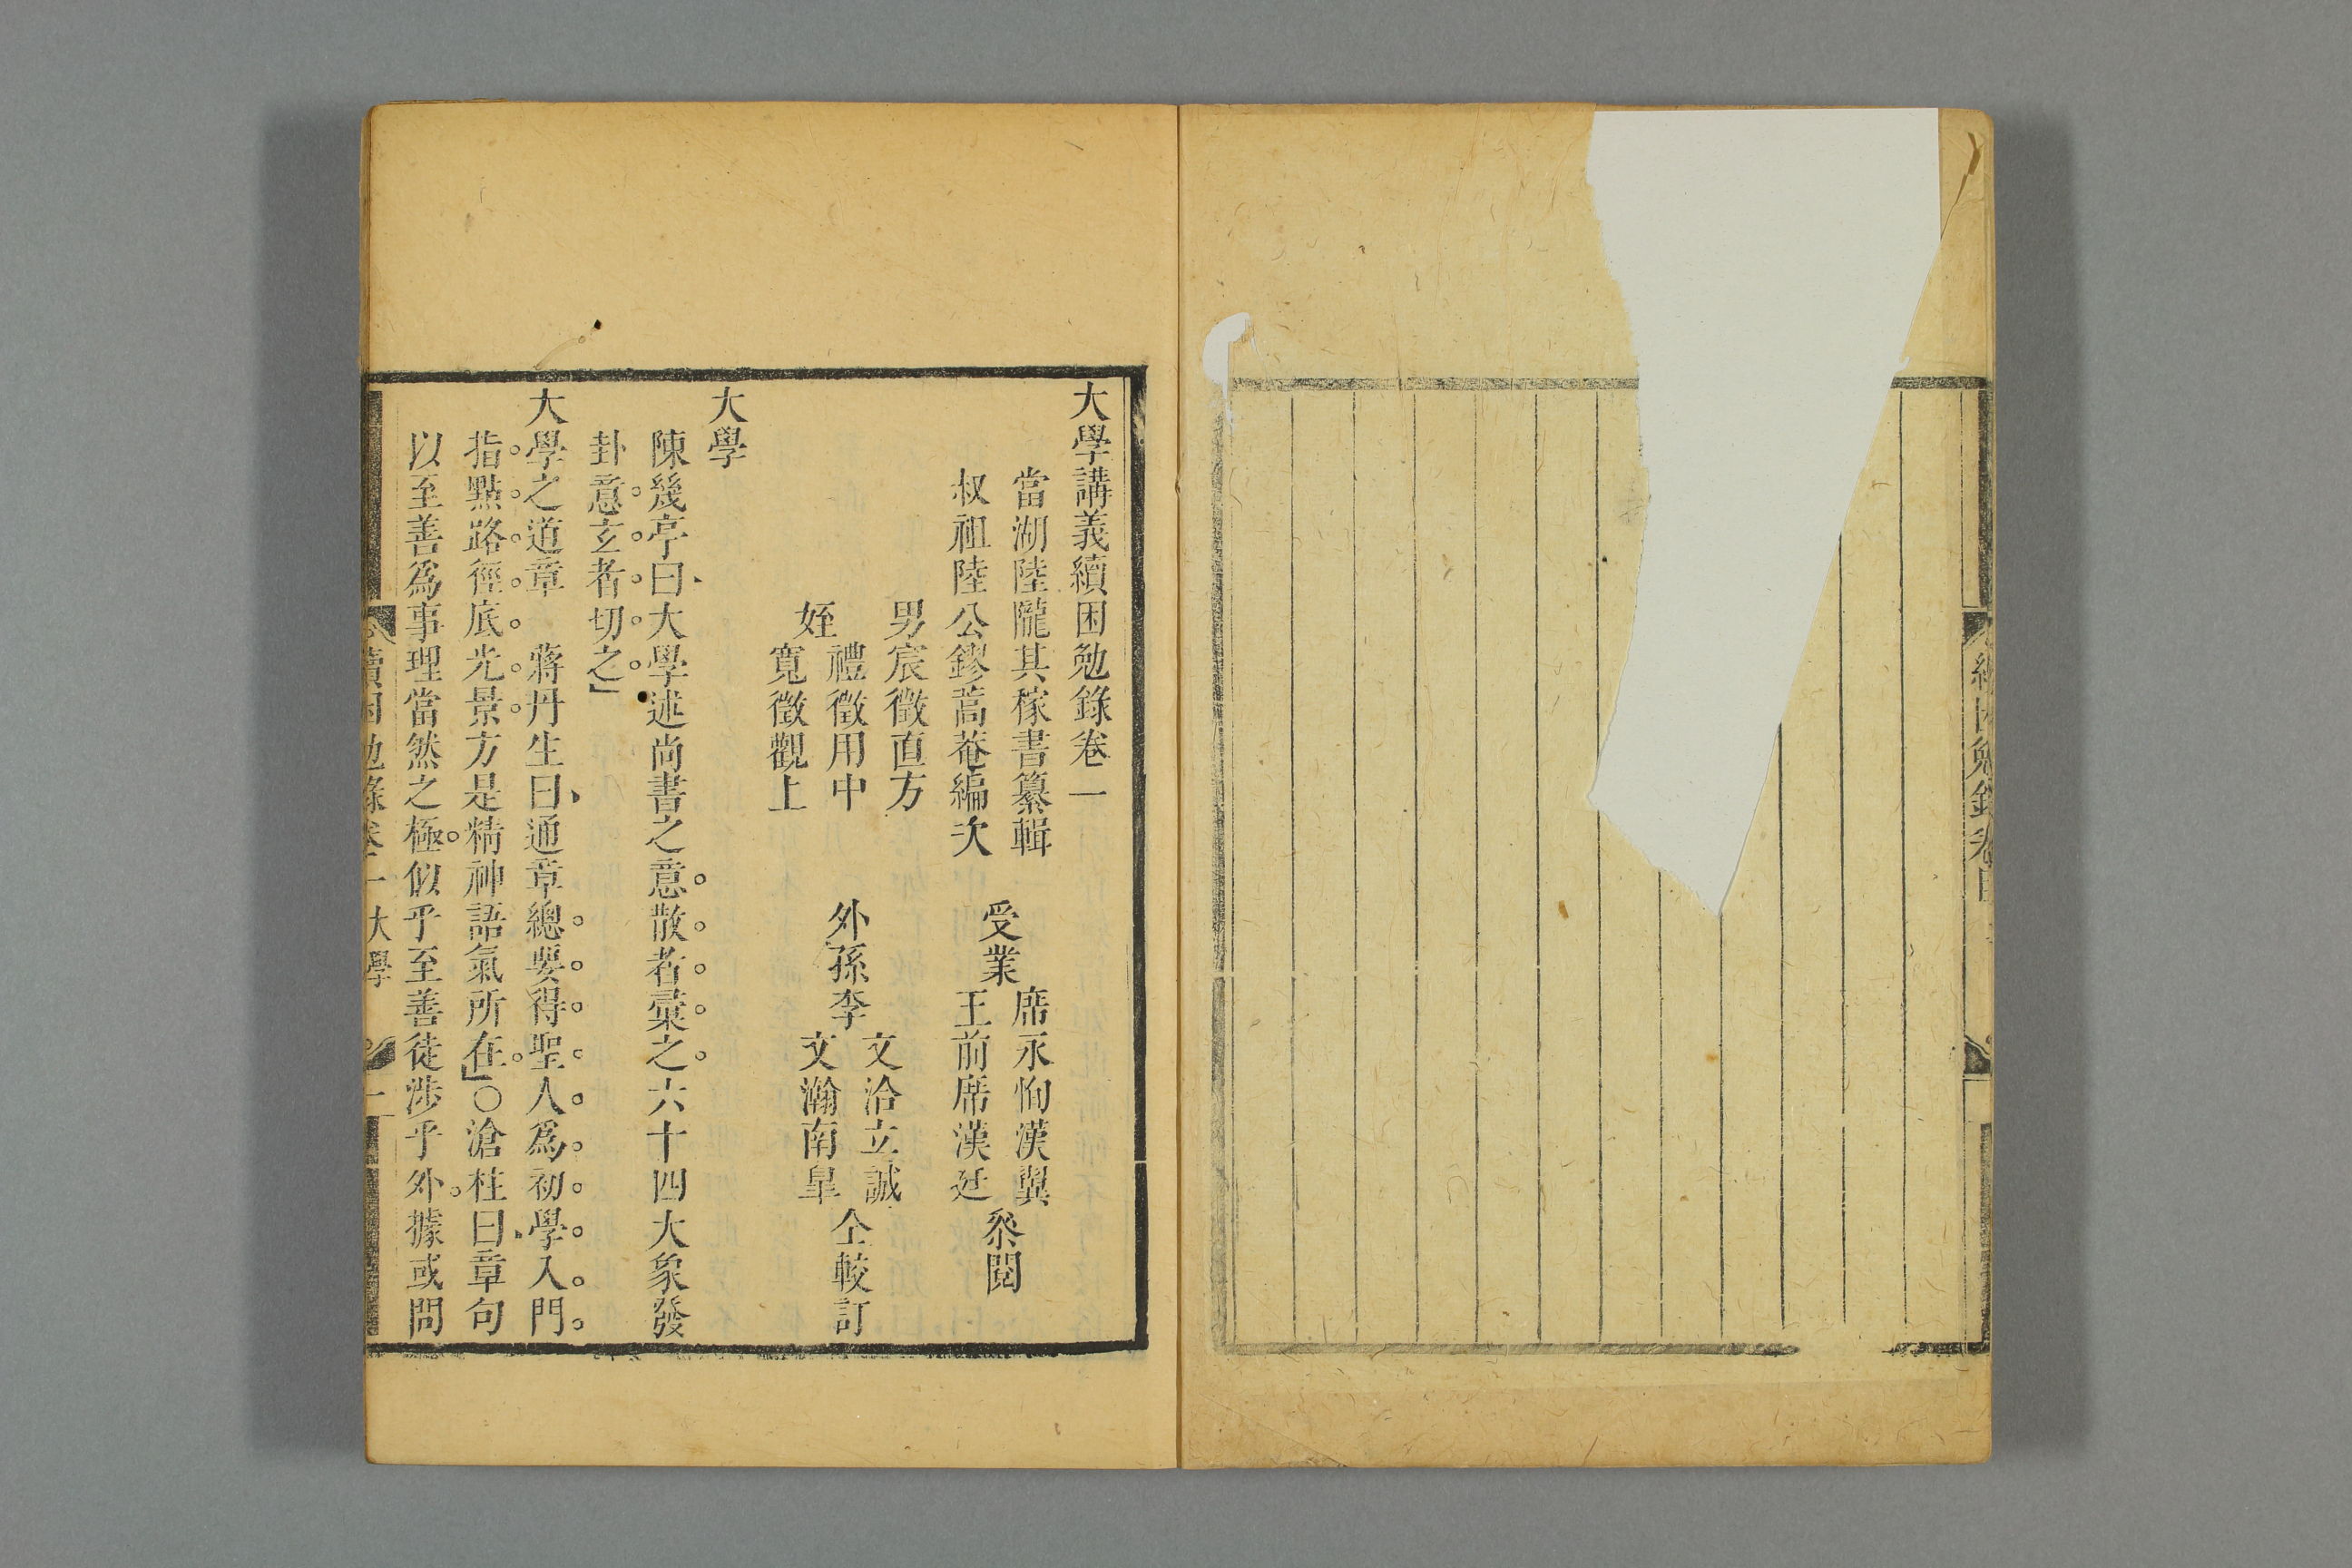 續困勉錄卷目
大學講義續困勉錄卷一
當湖陸隴其稼書纂輯
叔祖陸公鏐蒿菴編次
受業
席永恂漢翼
王前席漢廷
叅閱
男宸徵直方
姪
禮徵用中
寬徵觀上
外孫李
文洽立誠
文瀚南臯
仝較訂
大學
陳幾亭曰大學述尚書之意散者彙之六十四大象發
卦意玄者切之」
大學之道章 蔣丹生曰通章總要得聖人爲初學入門
指點路徑底光景方是精神語氣所在」○滄柱曰章句
以至善爲事理當然之極似乎至善徒涉乎外據或問
續困勉錄卷一 大學 一